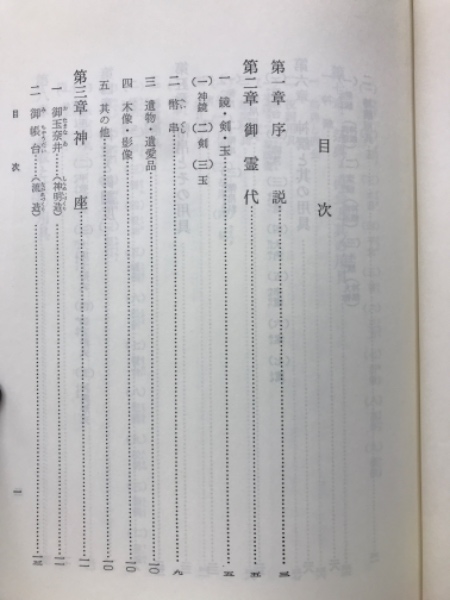 目次
第一章 序説……三
第二章 御霊代……五
一 鏡・剣・玉……五
(一)神鏡 (二)剣 (三)玉
二 幣串……九
三 遺物・遺愛品……一〇
四 木像・影像……一〇
五 其の他……一〇
第三章 神座……一一
一 御玉奈井(神明造)……一一
二 御帳台(流造)……一三
目次
一